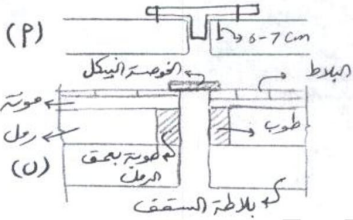 (P)
6-7 cm
الخوصة النيكل
البلاط
مونة
رمل
طوب
(ں)
طوبة بحق
الرمل
بلاطة السقف